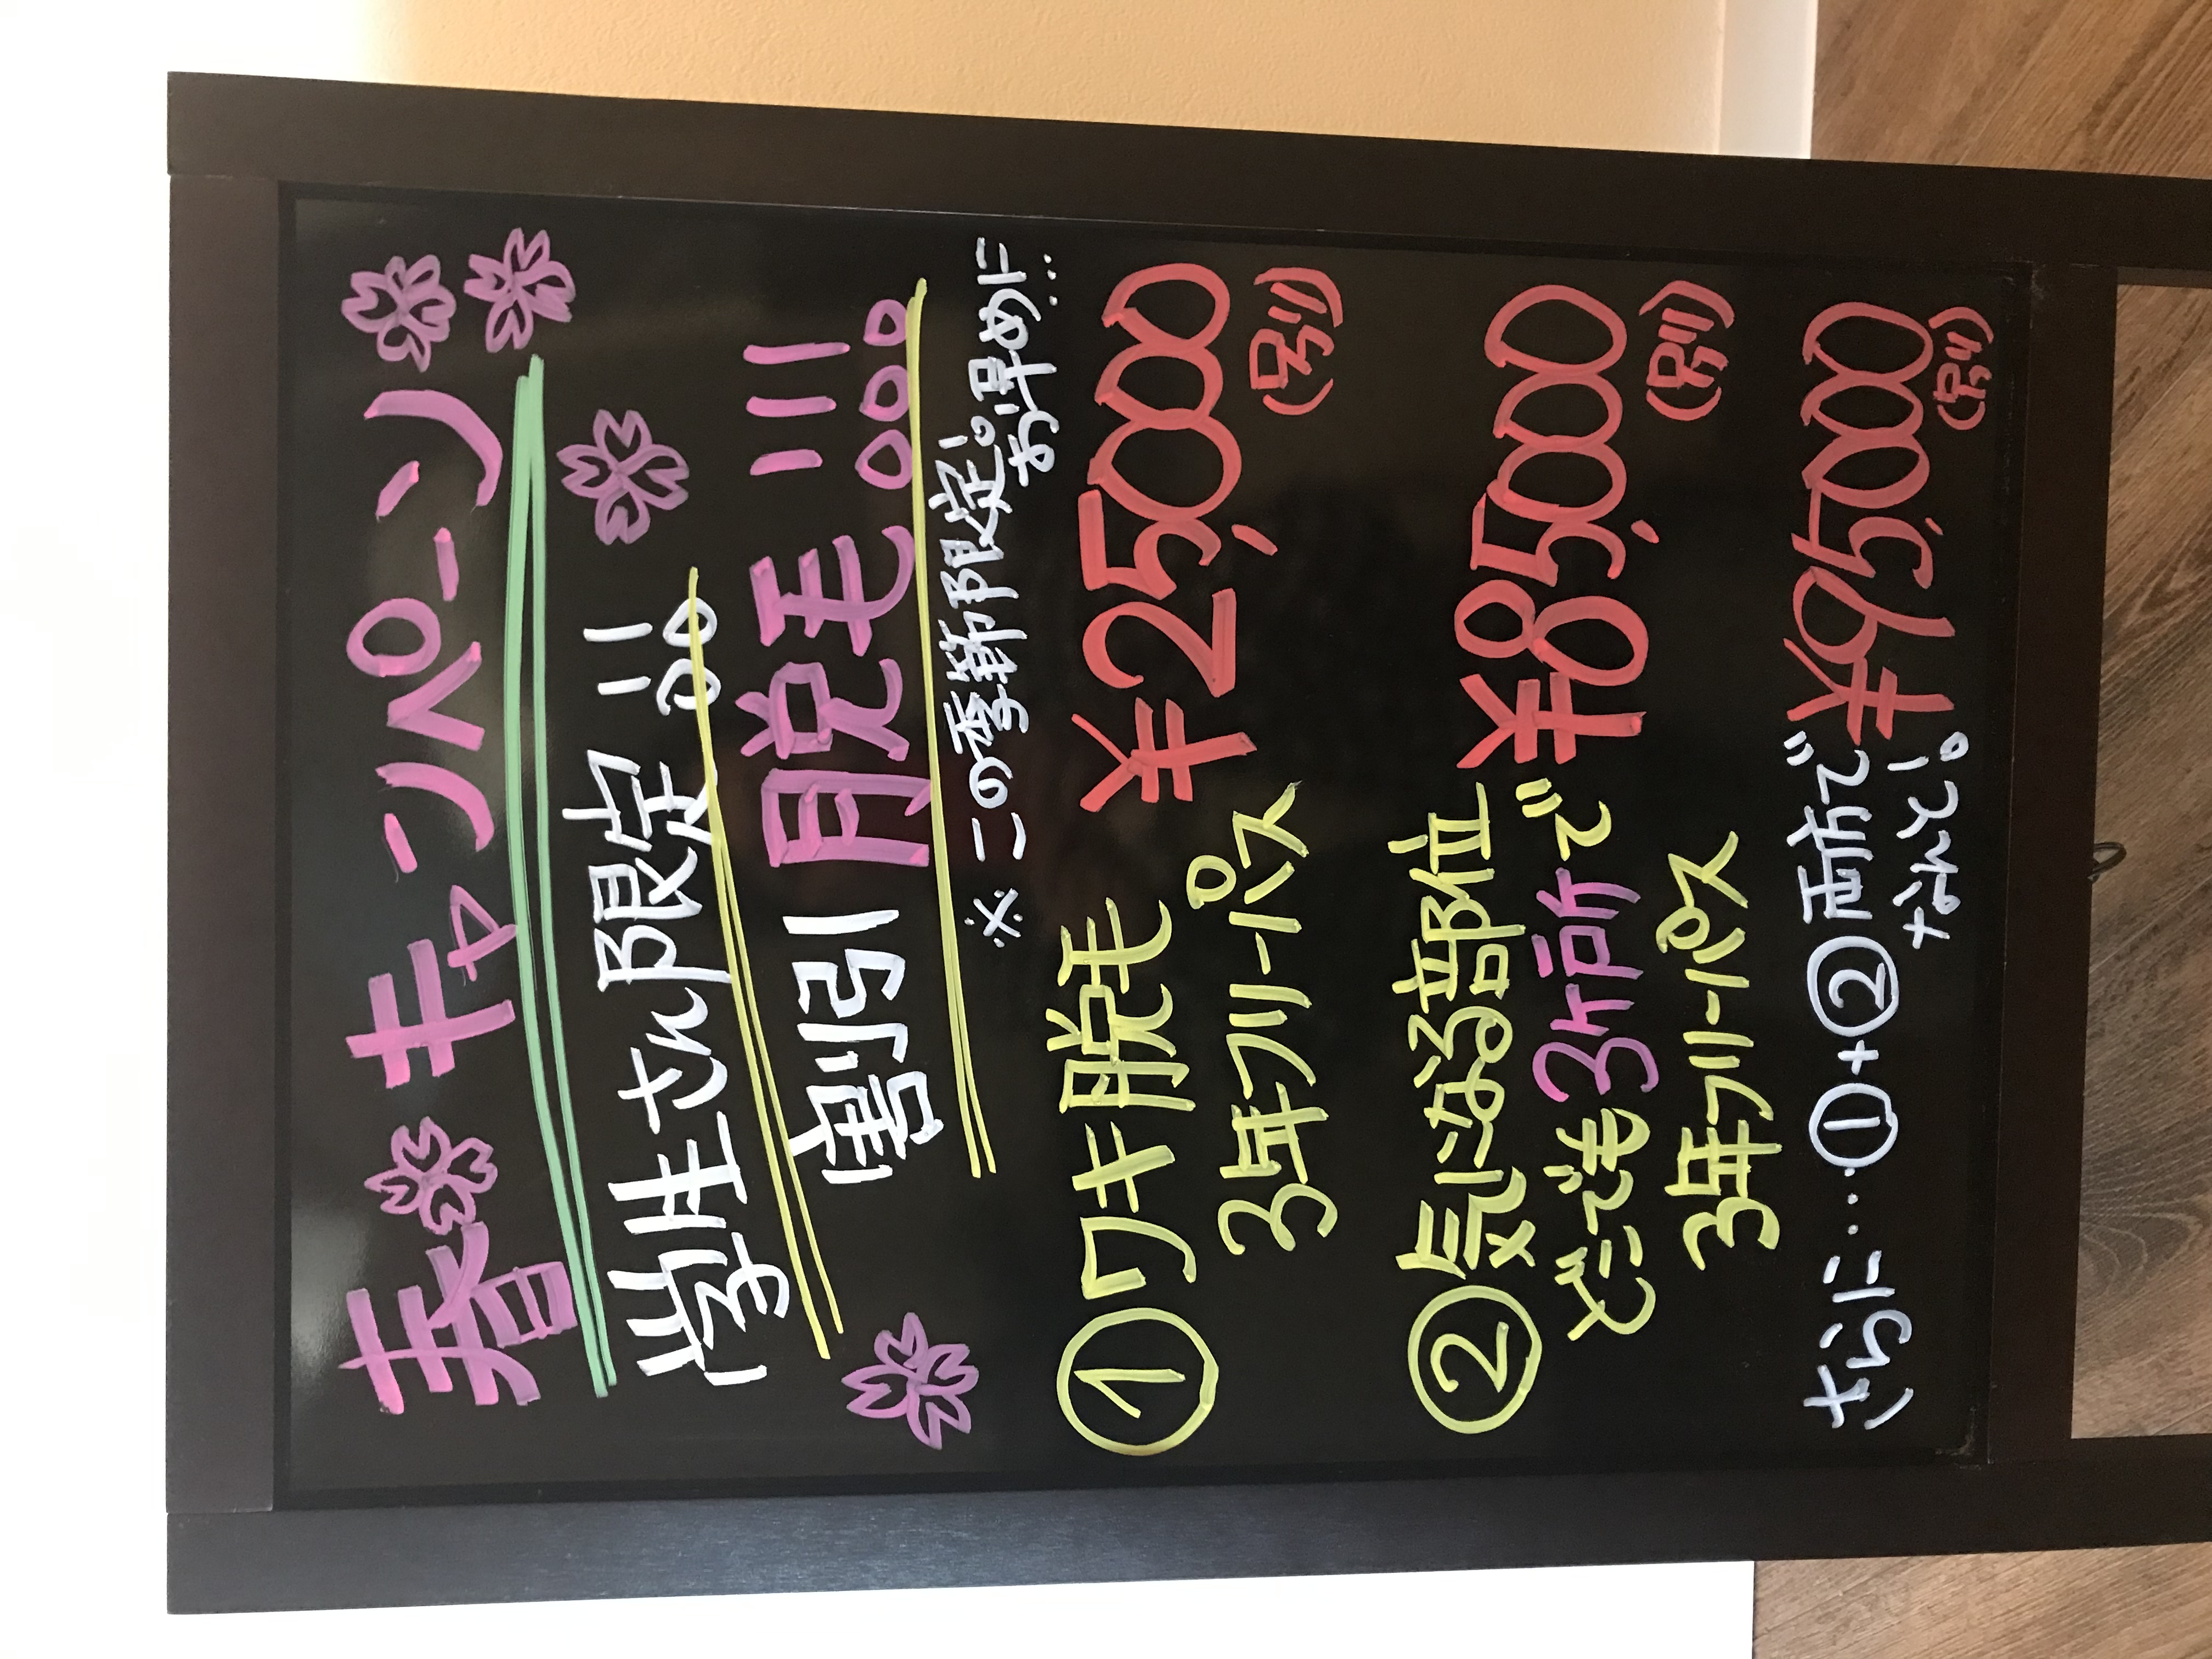 春キャンペーン
学生さん限定!!
割引 脱毛!!!
※この季節限定!。お早めに...
①ワキ脱毛 ¥25,000
3年フリーパス (別)
②気になる部位
どこでも3ヶ所で ¥85,000
3年フリーパス (別)
さらに...①+②両方で ¥95,000
なんと! (別)